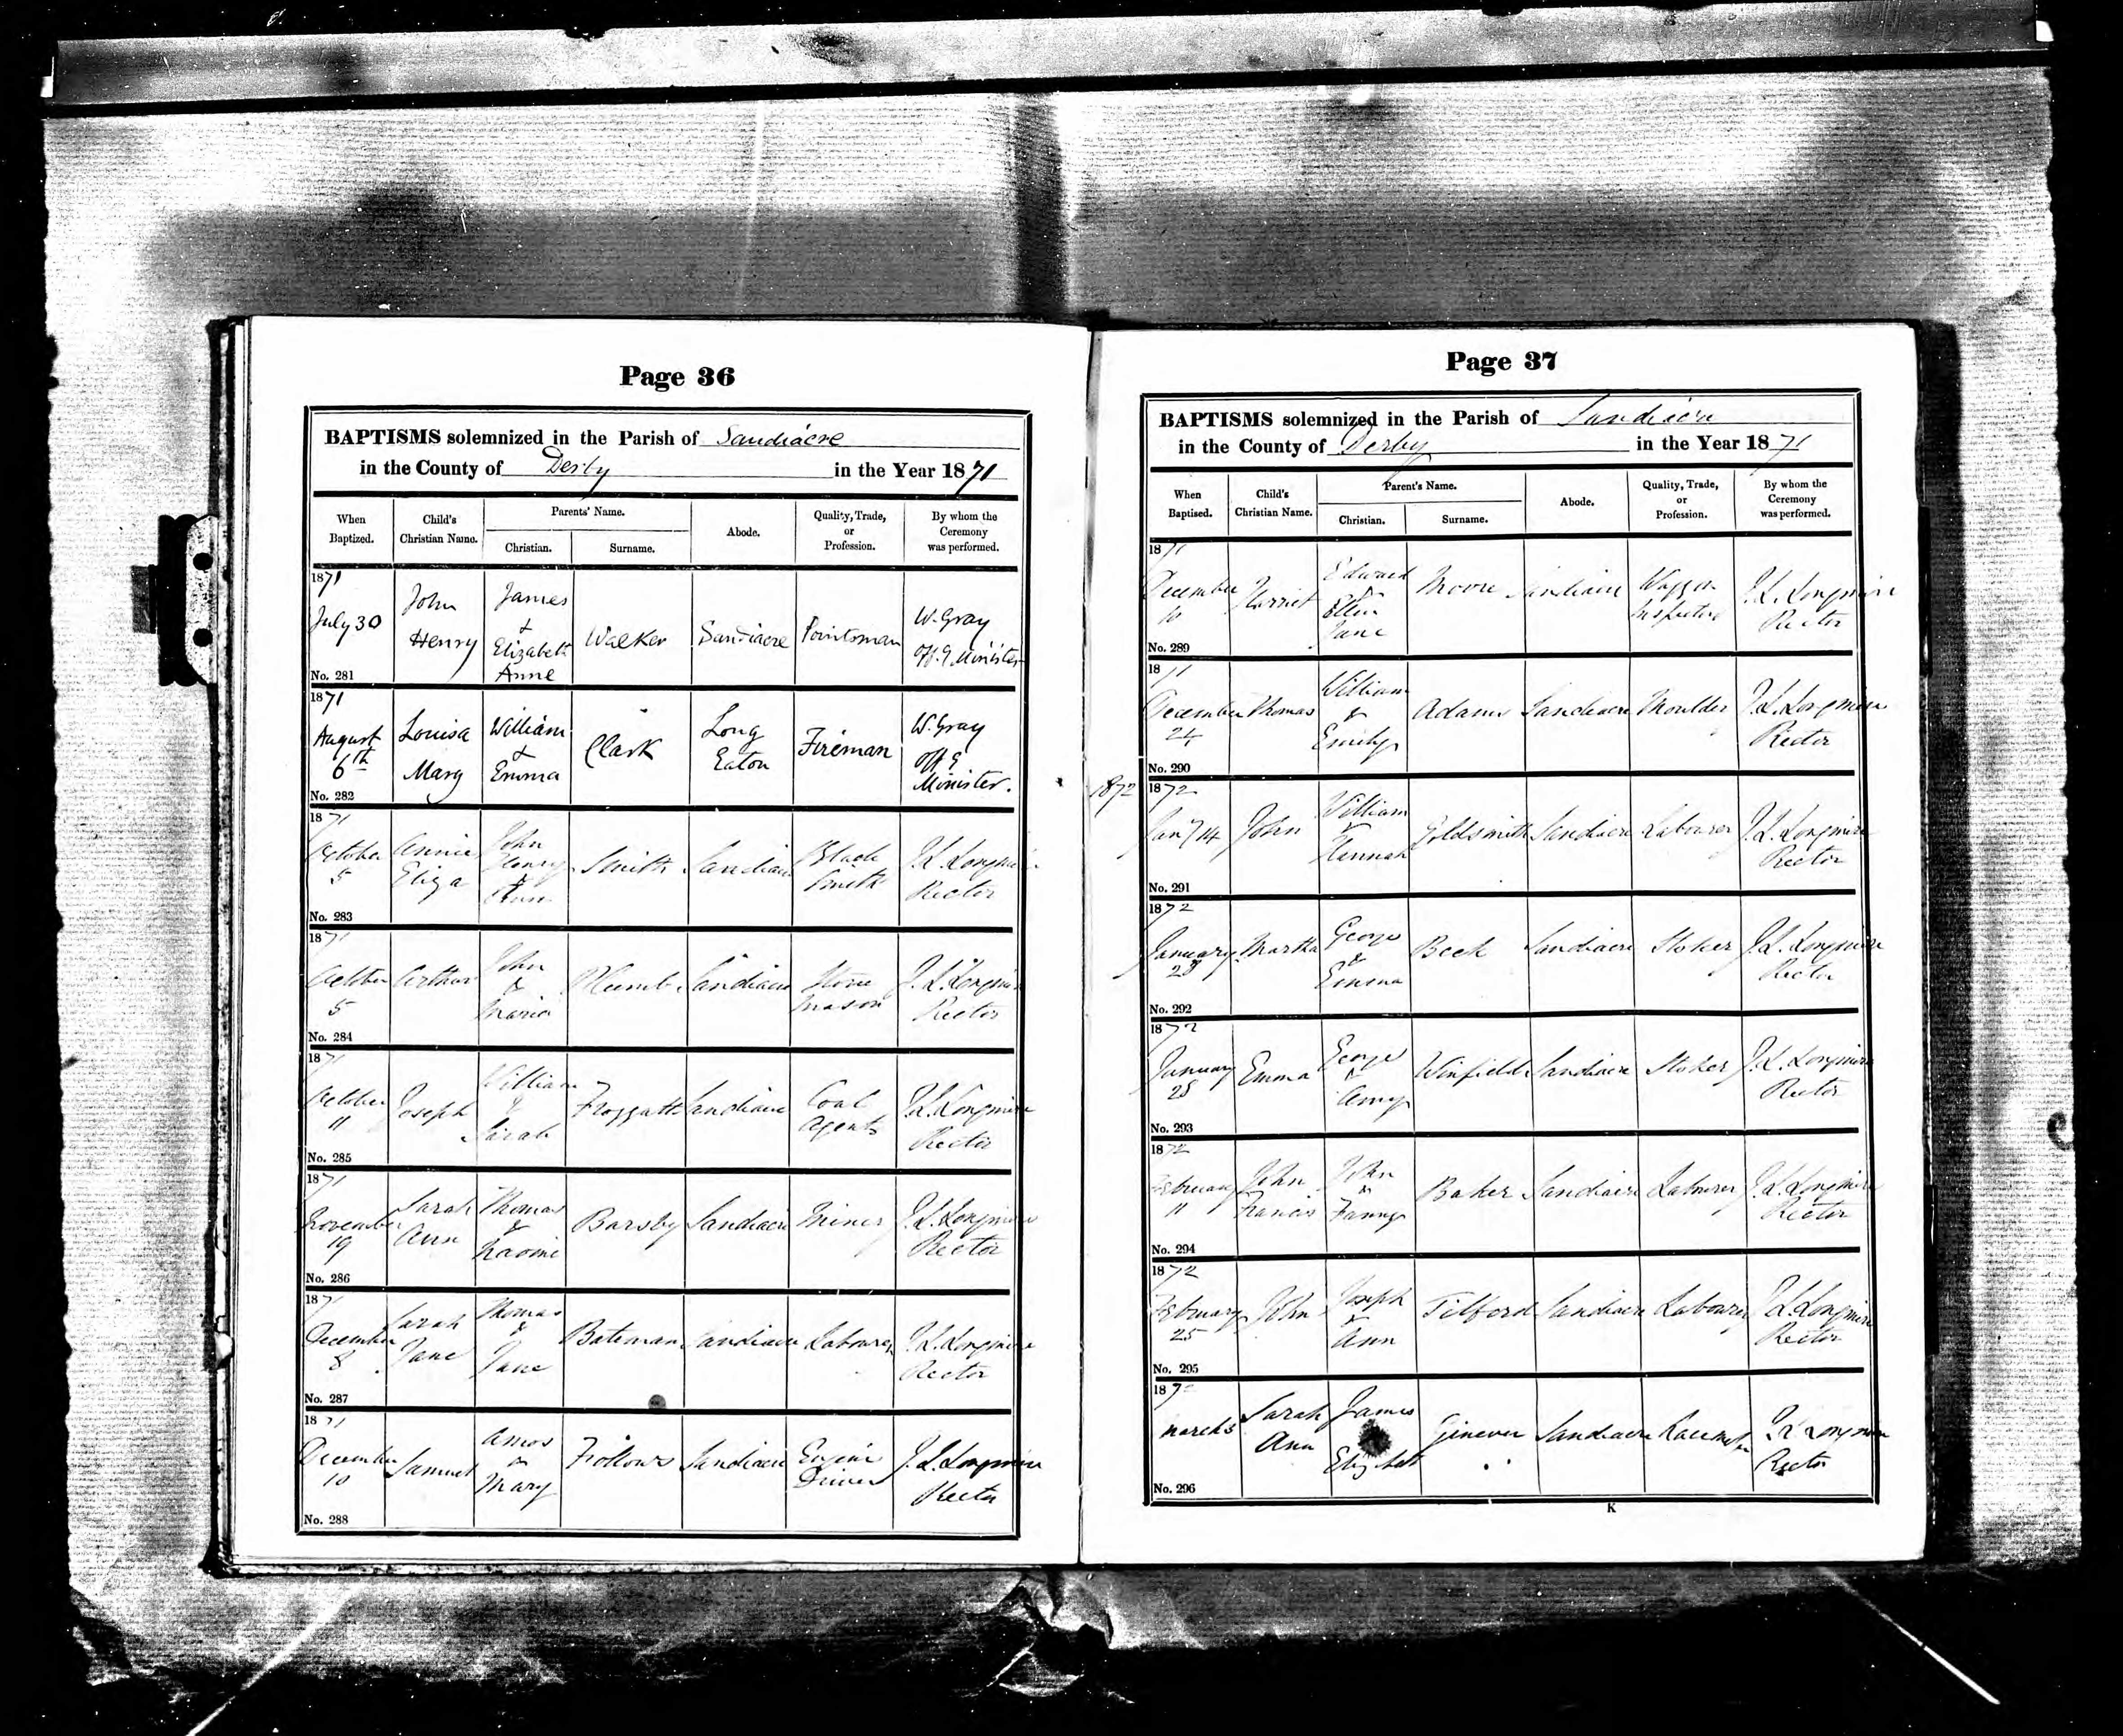 Page 36
BAPTISMS solemnized in the Parish of Sandiacre
in the County of Derby in the Year 1871
When Baptized. Child's Christian Name. Parents' Name. Christian. Surname. Abode. Quality, Trade, or Profession. By whom the Ceremony was performed.
1871 July 30 No. 281 John Henry James & Elizabeth Anne Walker Sandiacre Pointsman W. Gray Offg Minister
1871 August 6th No. 282 Louisa Mary William & Emma Clark Long Eaton Fireman W. Gray Offg Minister.
1871 October 5 No. 283 Annie Eliza John Henry & Ann Smith Sandiacre Black Smith J. L. Longmire Rector
1871 October 5 No. 284 Arthur John & Maria Plumb Sandiacre Stone Mason J. L. Longmire Rector
1871 October 11 No. 285 Joseph William & Sarah Froggatt Sandiacre Coal Agent J. L. Longmire Rector
1871 November 19 No. 286 Sarah Ann Thomas & Barsby Sandiacre Miner J. L. Longmire Rector
1871 December 8 No. 287 Sarah Jane Thomas & Jane Bateman Sandiacre Labourer J. L. Longmire Rector
1871 December 10 No. 288 Samuel Amos & Mary Sandiacre Engine Driver J. L. Longmire Rector
Page 37
BAPTISMS solemnized in the Parish of Sandiacre
in the County of Derby in the Year 1871
When Baptised. Child's Christian Name. Parent's Name. Christian. Surname. Abode. Quality, Trade, or Profession. By whom the Ceremony was performed.
1871 December 10 No. 289 Harriet Edward & Ellen Jane Moore Sandiacre Waggon Inspector J. L. Longmire Rector
1871 December 24 No. 290 Thomas William & Emily Adams Sandiacre Moulder J. L. Longmire Rector
1872 1872 Jany 14 No. 291 John William & Hannah Goldsmith Sandiacre Labourer J. L. Longmire Rector
1872 January 28 No. 292 Martha George & Emma Beck Sandiacre Stoker J. L. Longmire Rector
1872 January 28 No. 293 Emma George & Amy Winfield Sandiacre Stoker J. L. Longmire Rector
1872 February 11 No. 294 John Francis John & Fanny Baker Sandiacre Labourer J. L. Longmire Rector
1872 February 25 No. 295 John Joseph & Ann Tilford Sandiacre Labourer J. L. Longmire Rector
187 March 3 No. 296 Sarah Ann James Elizabeth Ginever Sandiacre J. L. Longmire Rector
K